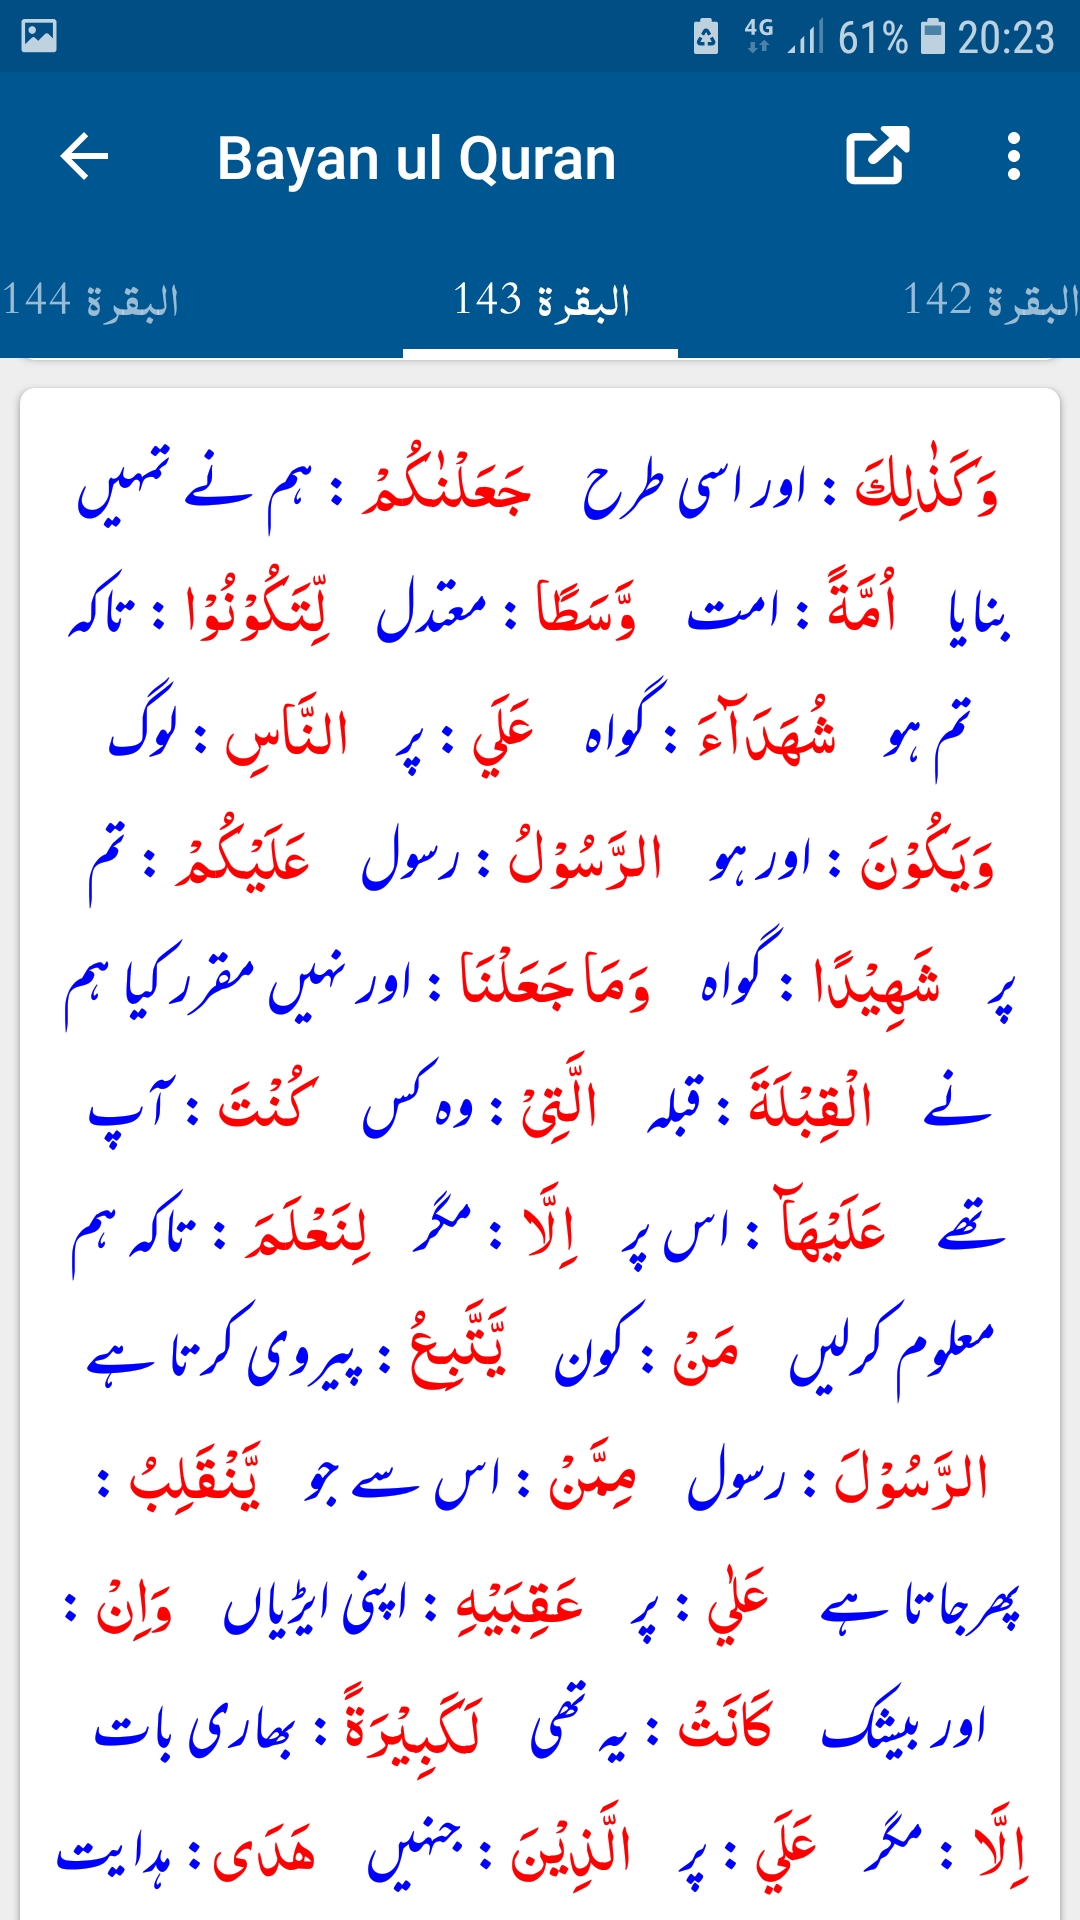 4G 61% 20:23
Bayan ul Quran
البقرة 142 البقرة 143 البقرة 144
وَكَذٰلِكَ : اور اسی طرح جَعَلْنٰكُمْ : ہم نے تمہیں
بنایا اُمَّةً : امت وَّسَطًا : معتدل لِّتَكُوْنُوْا : تاکہ
تم ہو شُهَدَآءَ : گواہ عَلَي : پر النَّاسِ : لوگ
وَيَكُوْنَ : اور ہو الرَّسُوْلُ : رسول عَلَيْكُمْ : تم
پر شَهِيْدًا : گواہ وَمَا جَعَلْنَا : اور نہیں مقرر کیا ہم
نے الْقِبْلَةَ : قبلہ الَّتِىْ : وہ کس كُنْتَ : آپ
تھے عَلَيْهَآ : اس پر اِلَّا : مگر لِنَعْلَمَ : تاکہ ہم
معلوم کرلیں مَنْ : کون يَّتَّبِعُ : پیروی کرتا ہے
الرَّسُوْلَ : رسول مِمَّنْ : اس سے جو يَّنْقَلِبُ :
پھر جاتا ہے عَلٰي : پر عَقِبَيْهِ : اپنی ایڑیاں وَاِنْ :
اور بیشک كَانَتْ : یہ تھی لَكَبِيْرَةً : بھاری بات
اِلَّا : مگر عَلَي : پر الَّذِيْنَ : جنہیں هَدَى : ہدایت